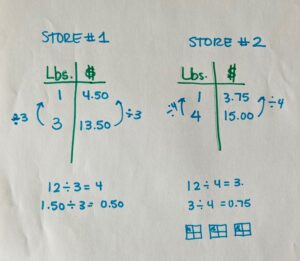 STORE #1
Lbs. $
1 4.50
÷3 ÷3
3 13.50
12÷3=4
1.50÷3= 0.50
STORE #2
Lbs. $
1 3.75
÷4 ÷4
4 15.00
12÷4=3.
3÷4=0.75